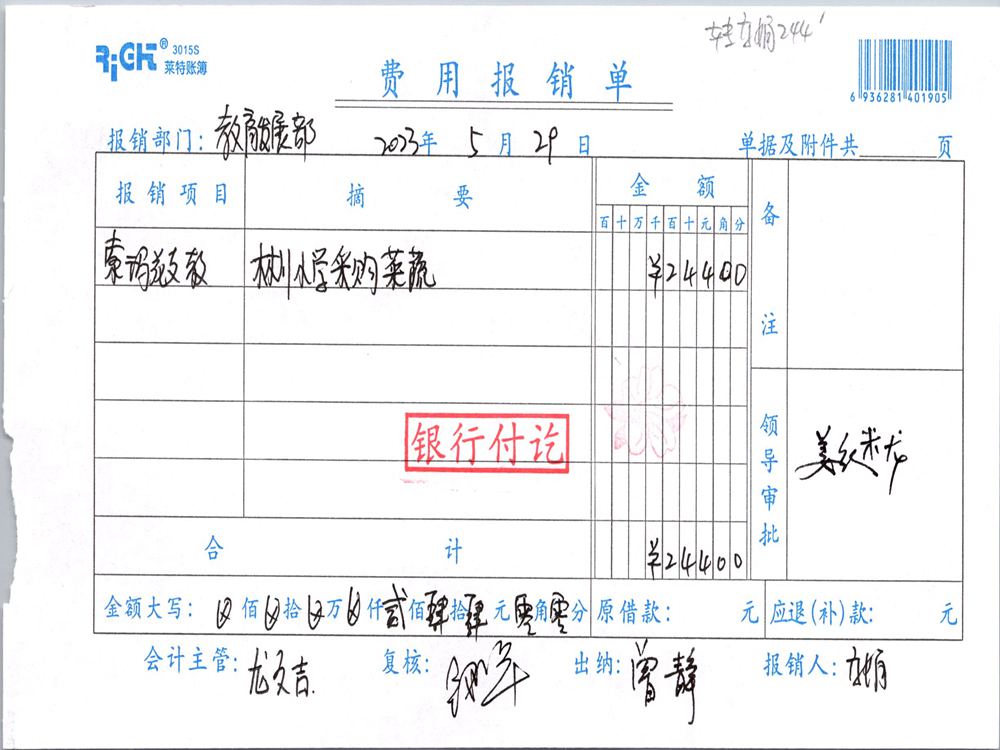 RiGHT® 3015S
莱特账簿
244
6 936281 401905
费用报销单
报销部门：教育发展部 2023年 5月 29日 单据及附件共 页
报销项目 摘要 金额 备注
百十万千百十元角分
索玛支教 林川小学采购菜蔬 ¥24400
银行付讫
领导审批
合计 ¥24400
金额大写： 佰 拾 万 仟贰佰肆拾肆元零角零分 原借款： 元 应退(补)款： 元
会计主管：尤文吉 复核： 出纳：曾静 报销人：